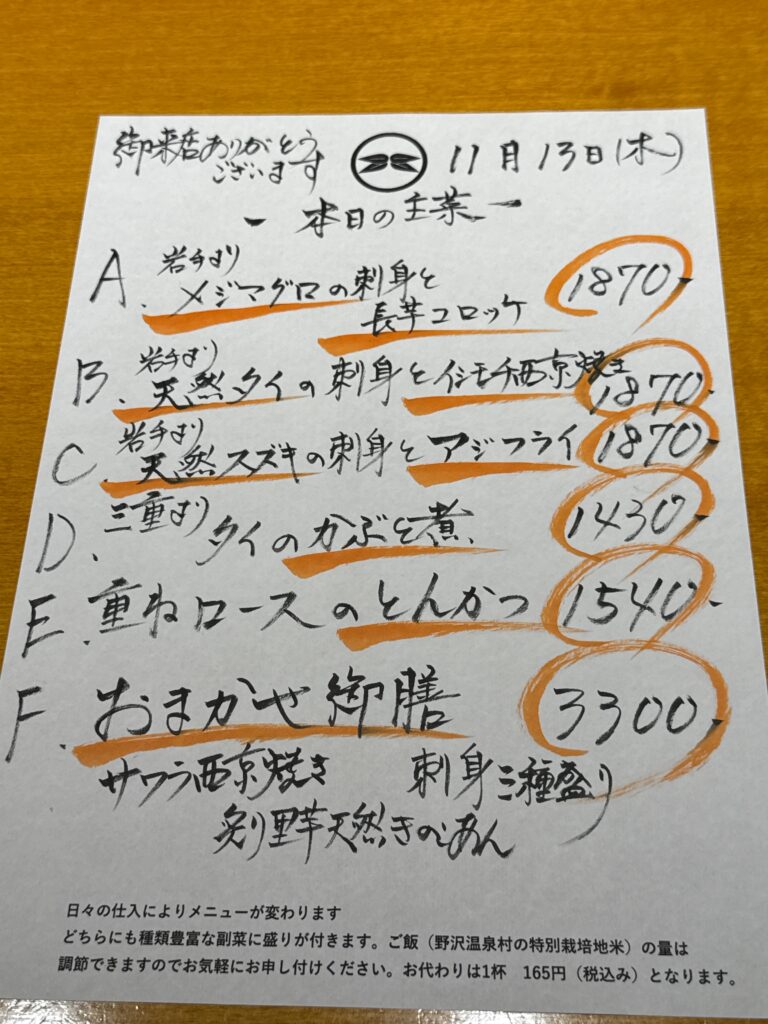 御来店ありがとう
ございます
11月13日(木)
ー 本日の主菜 ー
A. 岩手より
メジマグロの刺身と
長芋コロッケ
1870-
B. 岩手より
天然タイの刺身とイシモチ西京焼き
1870-
C. 岩手より
天然スズキの刺身とアジフライ
1870-
D. 三重より
タイのかぶと煮
1430-
E. 重ねロースのとんかつ 1540-
F. おまかせ御膳 3300-
サワラ西京焼き 刺身三種盛り
炙り里芋天然きのこあん
日々の仕入によりメニューが変わります
どちらにも種類豊富な副菜に盛りが付きます。ご飯（野沢温泉村の特別栽培地米）の量は
調節できますのでお気軽にお申し付けください。お代わりは1杯 165円（税込み）となります。